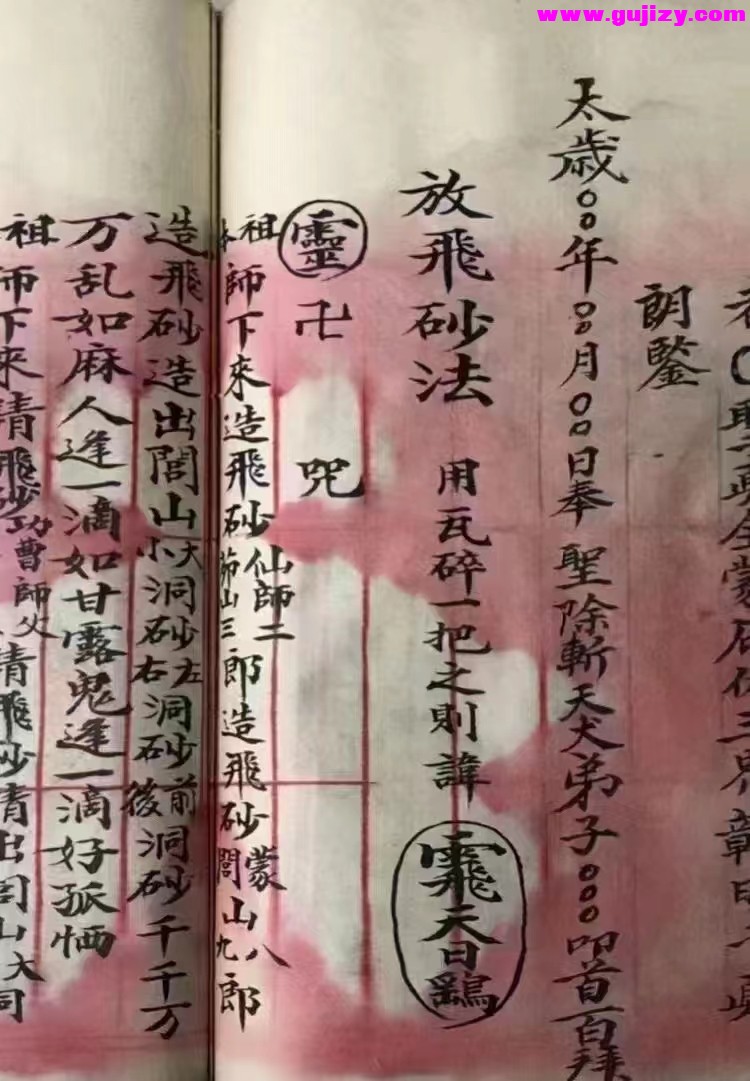 www.gujizy.com
三界
朗鑒
太歲〇〇年〇〇月〇〇日奉 聖除斬天犬弟子〇〇〇叩首百拜
放飛砂法 用瓦碎一把之則諱 天日
靈 卍 咒
祖本師下來造飛砂仙師二茆山三郎造飛砂蒙閭山八九郎
造飛砂造出閭山大小洞砂左右洞砂前後洞砂千千万
万乱如麻人逢一滴如甘露鬼逢一滴好孤恓
祖師下來請飛砂功曹師父請飛砂請出閭山大洞